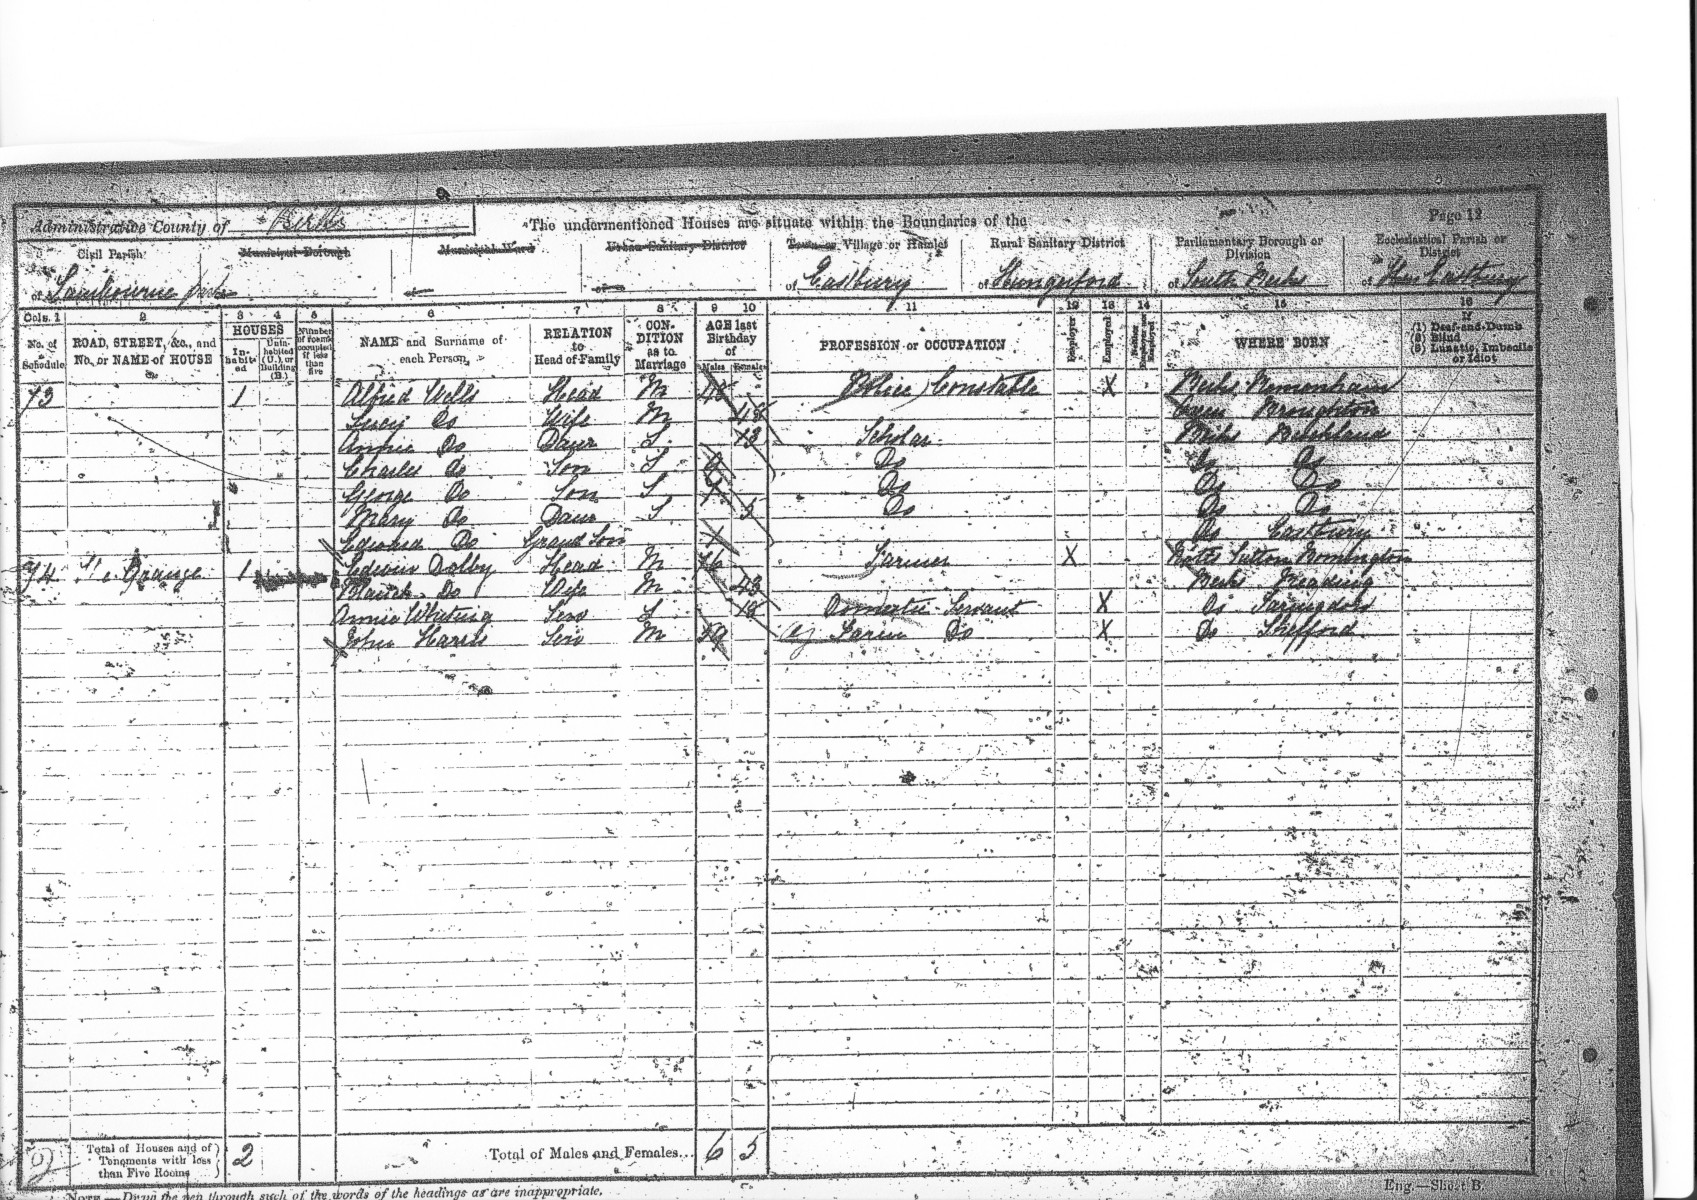 Page 12
Administrative County of Berks
The undermentioned Houses are situate within the Boundaries of the
Civil Parish
Municipal Borough
Municipal Ward
Urban Sanitary District
Town or Village or Hamlet
Rural Sanitary District
Parliamentary Borough or Division
Ecclesiastical Parish or District
of Lambourne part
of Eastbury
of Hungerford
of South Berks
of Eastbury
Cols. 1 2 3 4 5 6 7 8 9 10 11 12 13 14 15 16
No. of Schedule
ROAD, STREET, &c., and No. or NAME of HOUSE
HOUSES
Inhabited
Uninhabited (U.), or Building (B.)
Number of rooms occupied if less than five
NAME and Surname of each Person
RELATION to Head of Family
CONDITION as to Marriage
AGE last Birthday of
Males Females
PROFESSION or OCCUPATION
Employer
Employed
Neither Employer nor Employed
WHERE BORN
If (1) Deaf-and-Dumb (2) Blind (3) Lunatic, Imbecile or Idiot
73 1 Alfred Wells Head M 48 Police Constable X Berks Remenham
Lucy Do Wife M 48 Oxon Broughton
Annie Do Daur S 13 Scholar Berks
Charles Do Son S Do Do Do
George Do Son S Do Do Do
Mary Do Daur S 5 Do Do Do
Do Grand Son Do Eastbury
74 Grange 1 Edwin Dolby Head M Farmer X Notts Sutton Bonnington
Do Wife M 43 Berks Reading
Annie Whiting Serv S 18 Domestic Servant X Do Faringdon
John Harris Serv M Farm Do X Do Shefford
Total of Houses and of Tenements with less than Five Rooms
2
Total of Males and Females...
6 5
NOTE.—Draw the pen through such of the words of the headings as are inappropriate.
Eng.—Sheet B.